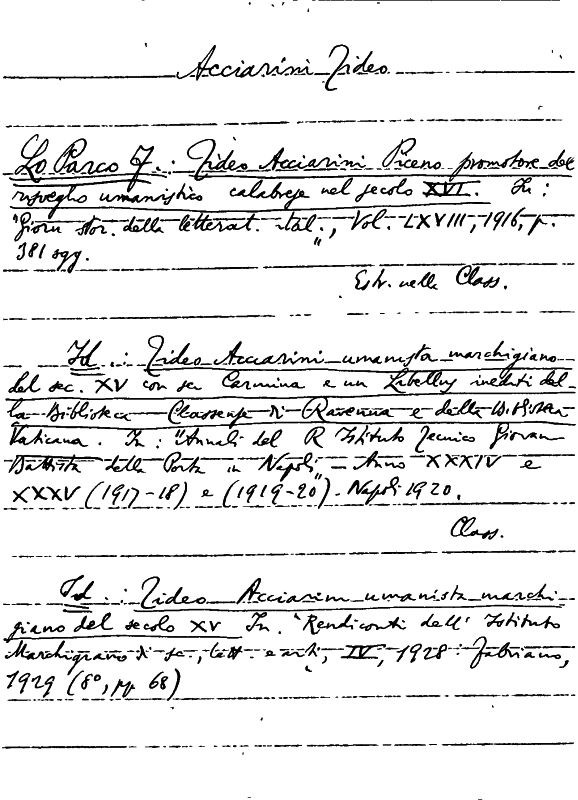 Acciarini Tideo
Lo Parco F.: Tideo Acciarini Piceno promotore del
risveglio umanistico calabrese nel secolo XVI. In:
"Giorn. stor. della letterat. ital.", Vol. LXVIII, 1916, p.
381 sgg.
Estr. nella Class.
Id.: Tideo Acciarini umanista marchigiano
del sec. XV con sei Carmina e un Libellus inediti del
la Biblioteca Classense di Ravenna e della Biblioteca
Vaticana. In: "Annali del R Istituto Tecnico Giovan
Battista della Porta in Napoli - Anno XXXIV e
XXXV (1917-18) e (1919-20)". Napoli 1920.
Class.
Id.: Tideo Acciarini umanista marchi-
giano del secolo XV In. "Rendiconti dell' Istituto
Marchigiano di sc., lett. e arti", IV, 1928: Fabriano,
1929 (8°, pp 68)